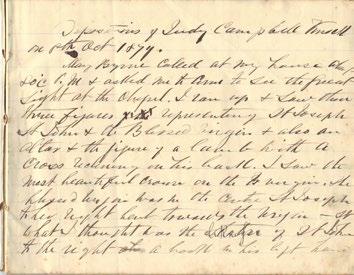 Depositions of Judy Campbell Knock
on 8th Oct 1879.
Mary Byrne called at my house about
8 oc P.M & asked me to come to see the great
sight at the Chapel. I ran up & saw then
three figures representing St Joseph
St John & the Blessed Virgin & also an
altar & the figure of a lamb with a
cross reclining on his back. I saw the
most beautiful crown on the B virgin. The
blessed virgin was in the centre St Joseph
to her right bent towards the Virgin – St
what I thought was the of St John
to the right a book in his left hand